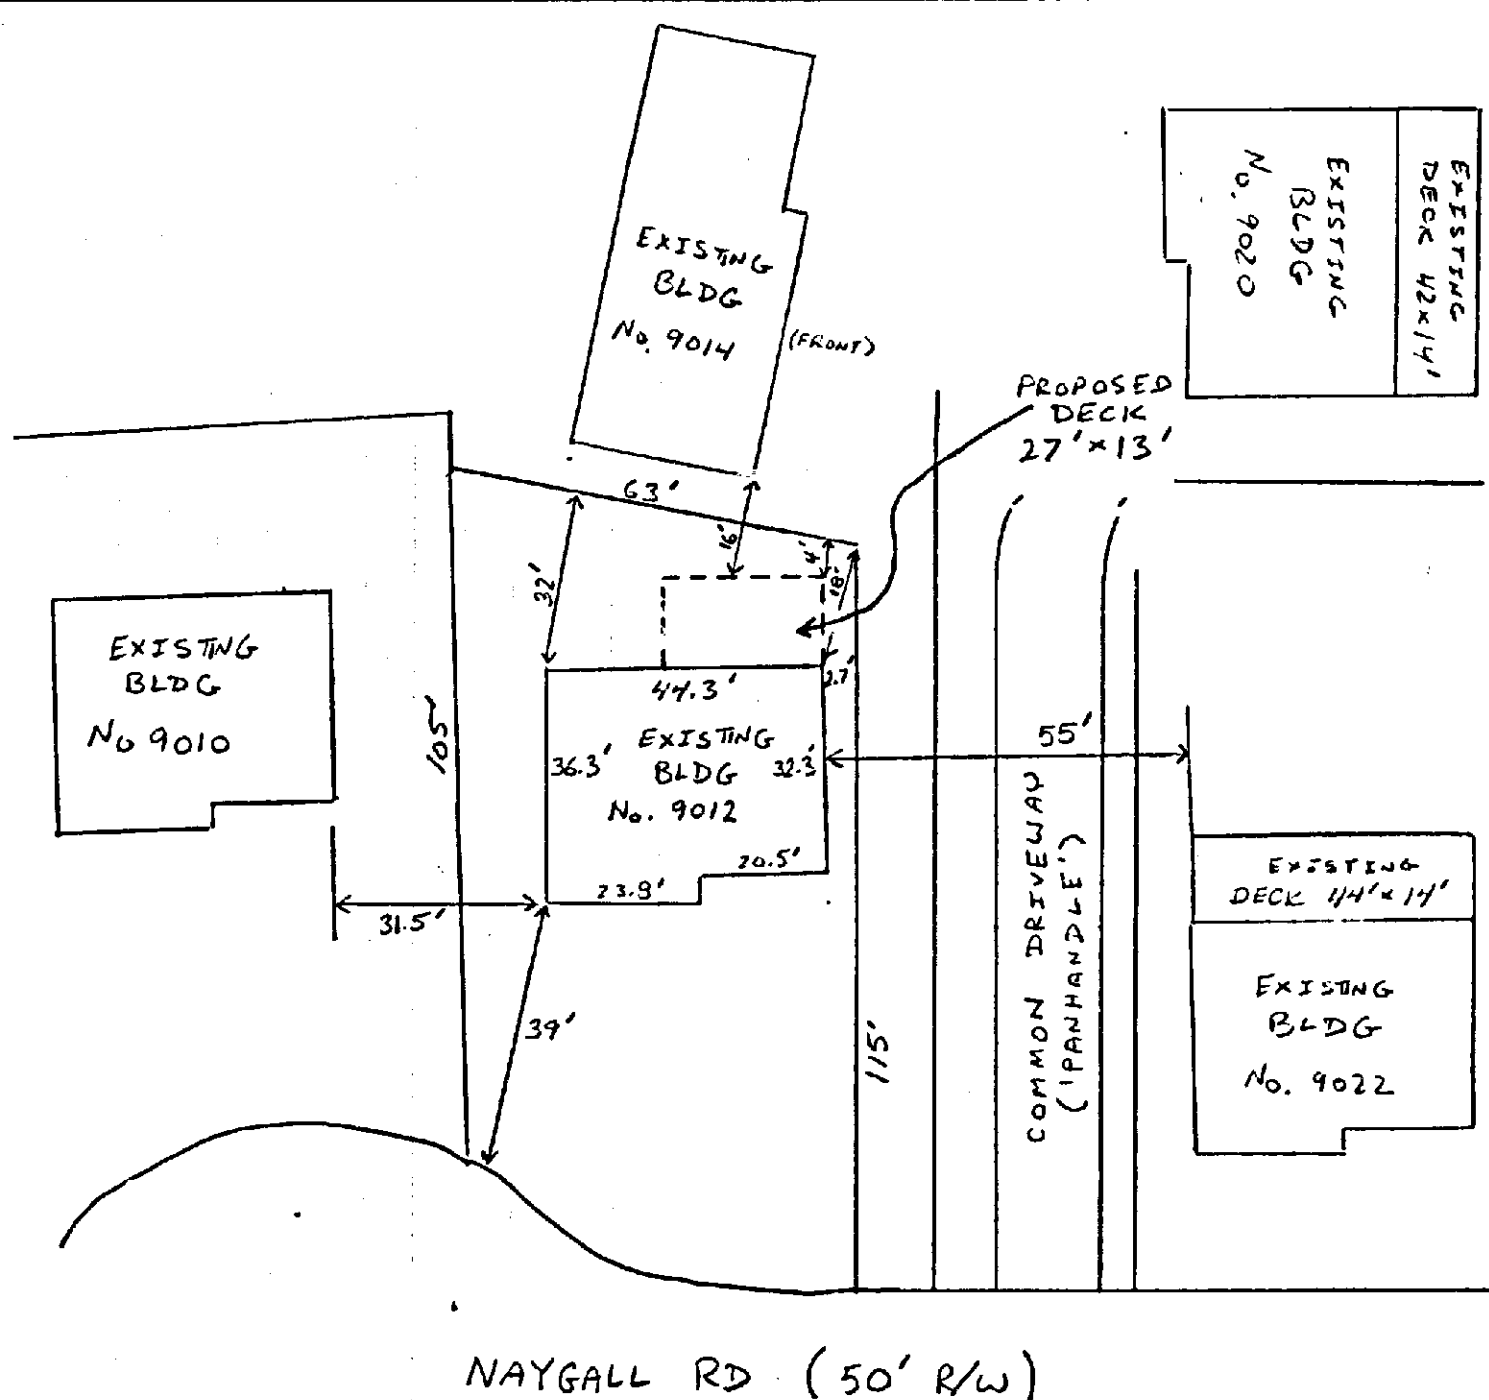 EXISTING
BLDG
No. 9014
(FRONT)
EXISTING
BLDG
No. 9020
EXISTING
DECK 42x14'
PROPOSED
DECK
27'x13'
63'
16'
4'
18'
32'
2.7'
EXISTING
BLDG
No 9010
105'
44.3'
36.3'
EXISTING
BLDG
No. 9012
32.3'
20.5'
23.8'
55'
31.5'
39'
115'
COMMON DRIVEWAY
('PANHANDLE')
EXISTING
DECK 44'x14'
EXISTING
BLDG
No. 9022
NAYGALL RD (50' R/W)